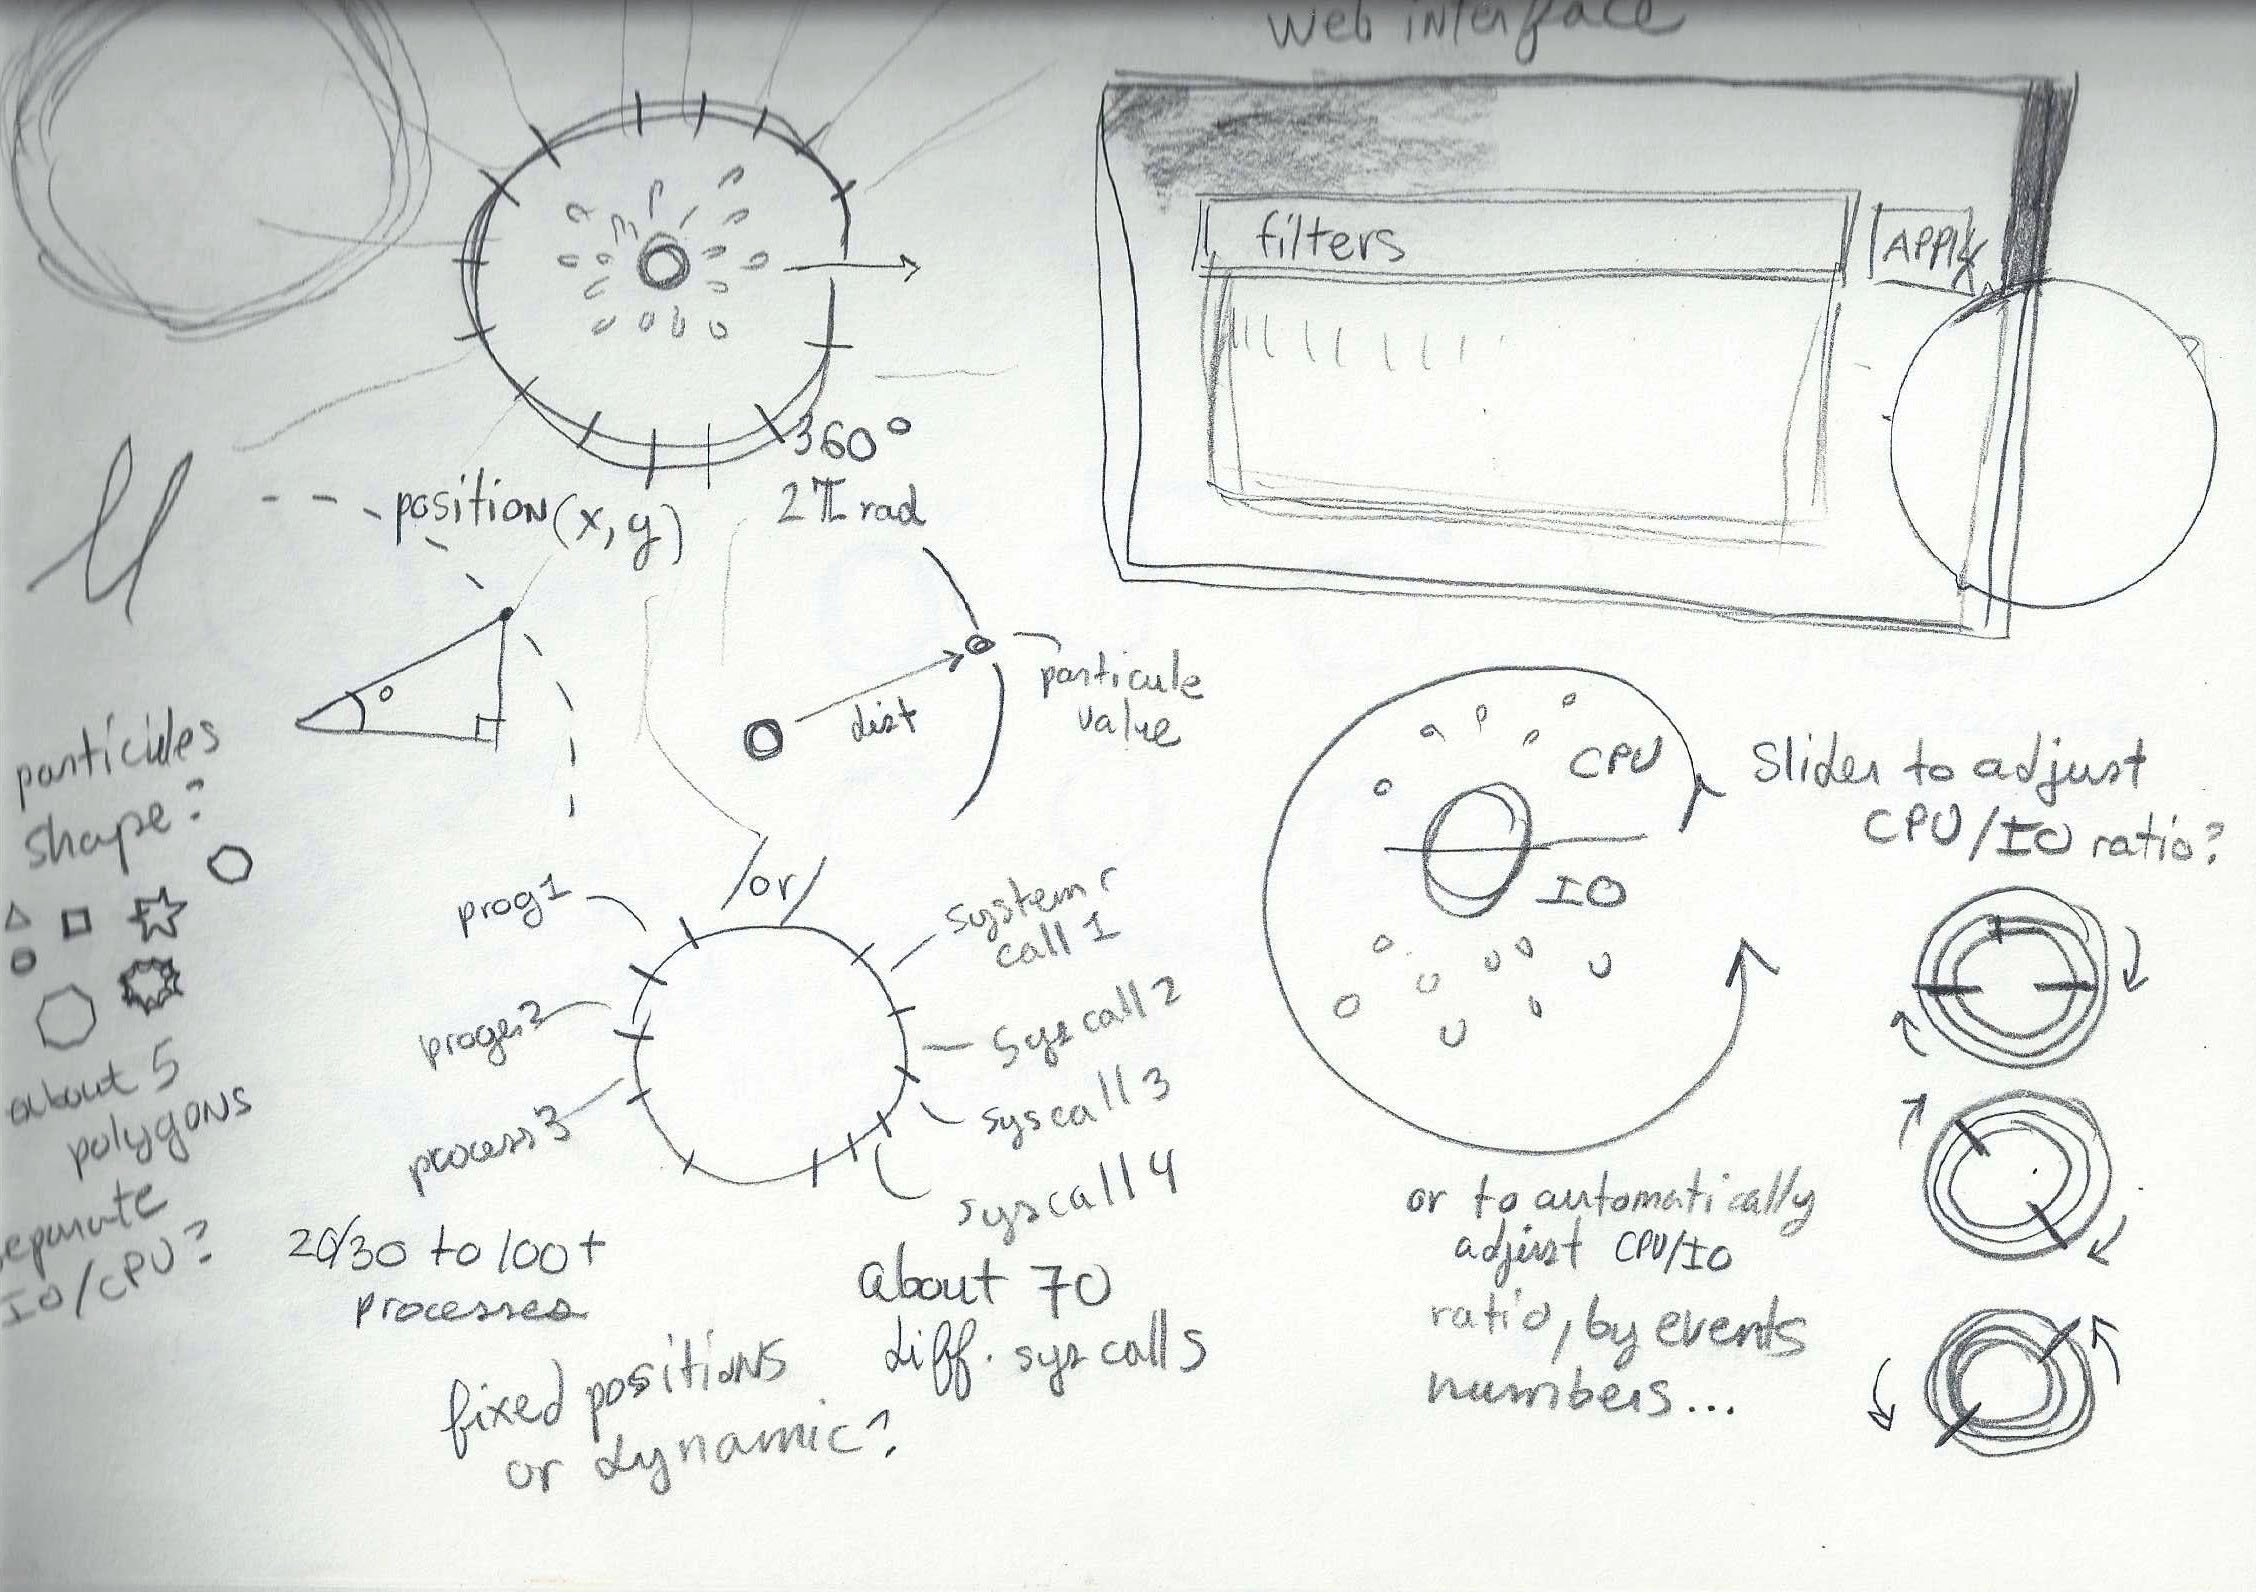 web interface
filters
APPLY
360°
2π rad
position(x, y)
dist
particule
value
particules
shape?
about 5
polygons
separate
IO/CPU?
/or/
prog1
process3
system
call 1
sys call 2
sys call 3
sys call 4
20/30 to 100+
processes
about 70
diff. sys calls
fixed positions
or dynamic?
CPU
IO
Slider to adjust
CPU/IO ratio?
or to automatically
adjust CPU/IO
ratio, by events
numbers...